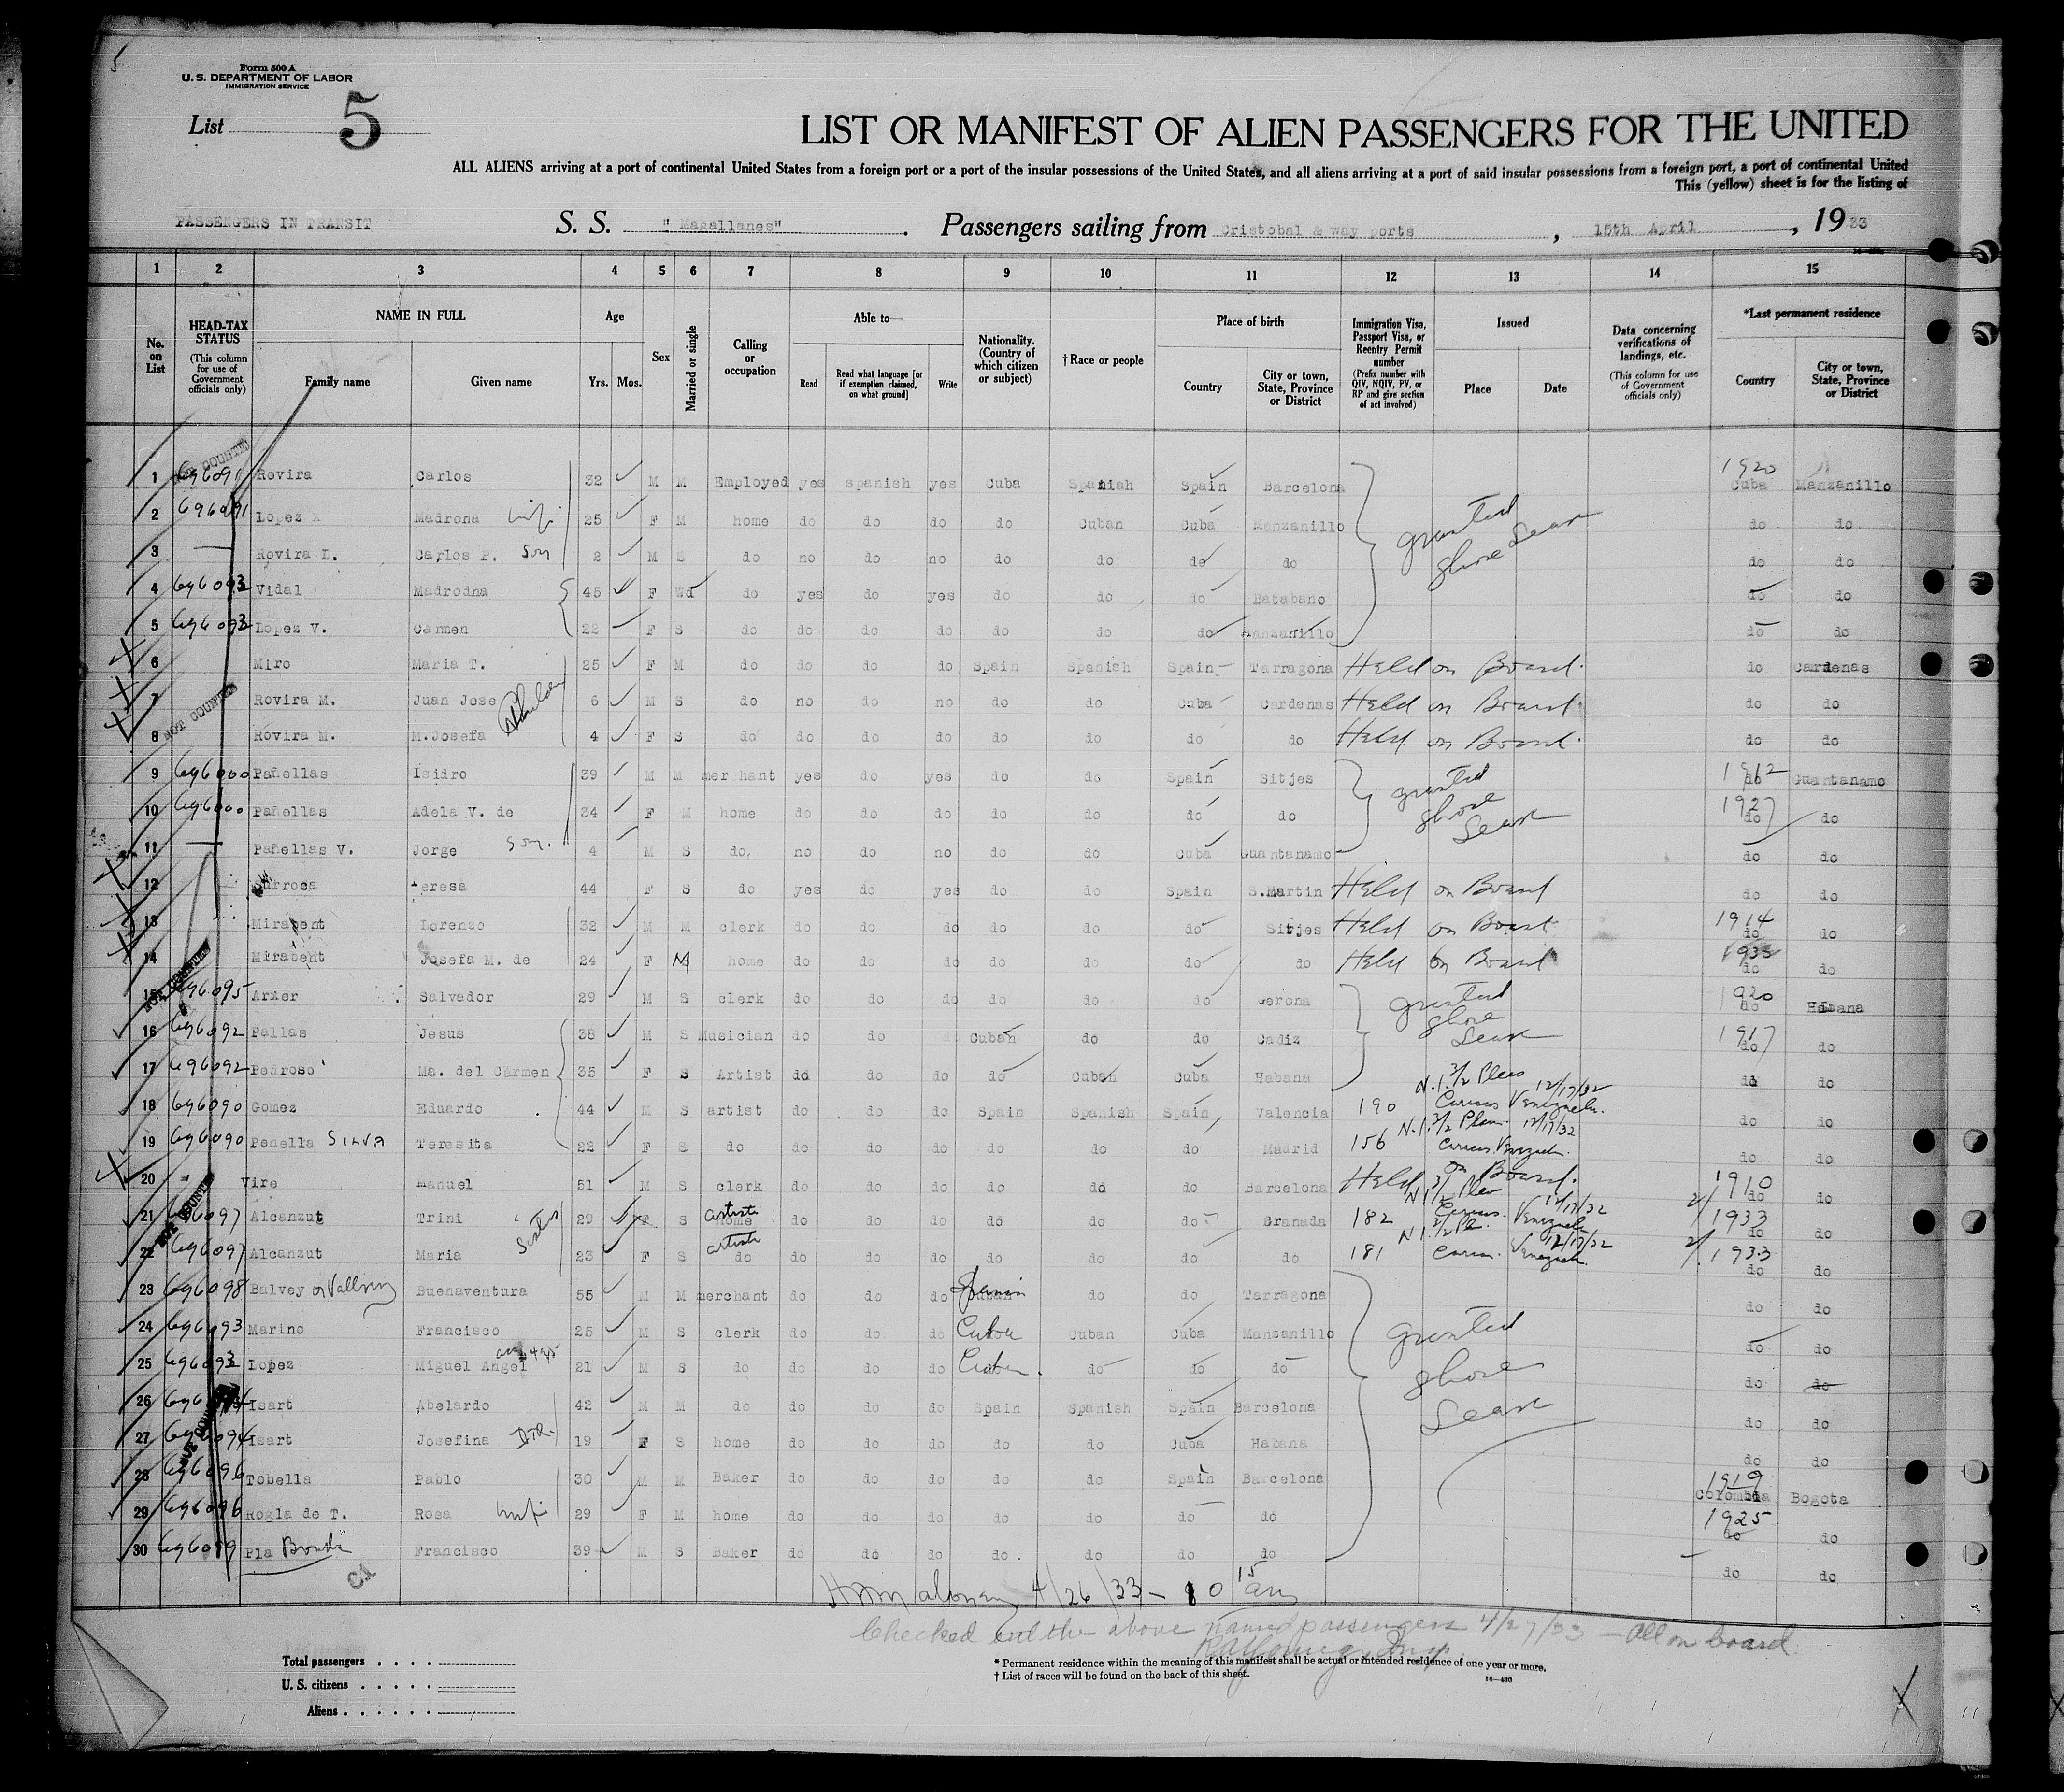 5
Form 500 A
U. S. DEPARTMENT OF LABOR
IMMIGRATION SERVICE
List 5
LIST OR MANIFEST OF ALIEN PASSENGERS FOR THE UNITED
ALL ALIENS arriving at a port of continental United States from a foreign port or a port of the insular possessions of the United States, and all aliens arriving at a port of said insular possessions from a foreign port, a port of continental United
This (yellow) sheet is for the listing of
PASSENGERS IN TRANSIT S. S. "Magallanes". Passengers sailing from Cristobal & way ports, 15th April, 1933
1 2 3 4 5 6 7 8 9 10 11 12 13 14 15
No. on List
HEAD-TAX STATUS (This column for use of Government officials only)
NAME IN FULL Family name Given name
Age Yrs. Mos.
Sex
Married or single
Calling or occupation
Able to— Read Read what language [or if exemption claimed, on what ground] Write
Nationality. (Country of which citizen or subject)
†Race or people
Place of birth Country City or town, State, Province or District
Immigration Visa, Passport Visa, or Reentry Permit number (Prefix number with QIV, NQIV, PV, or RP and give section of act involved)
Issued Place Date
Data concerning verifications of landings, etc. (This column for use of Government officials only)
*Last permanent residence Country City or town, State, Province or District
1 696091 Rovira Carlos 32 M M Employed yes spanish yes Cuba Spanish Spain Barcelona 1920 Cuba Manzanillo
2 696091 Lopez Madrona wife 25 F M home do do do do Cuban Cuba Manzanillo granted shore leave do do
3 — Rovira L. Carlos P. son 2 M S do no do no do do do do do do
4 696093 Vidal Madrodna 45 F Wd do yes do yes do do do Batabano do do
5 696093 Lopez V. Carmen 22 F S do do do do do do do Manzanillo do do
6 Miro Maria T. 25 F M do do do do Spain Spanish Spain Tarragona Held on Board. do Cardenas
7 Rovira M. Juan Jose 6 M S do no do no do do Cuba Cardenas Held on Board. do do
8 Rovira M. M.Josefa 4 F S do do do do do do do do Held on Board. do do
9 696000 Pañellas Isidro 39 M M merchant yes do yes do do Spain Sitjes granted 1912 do Guantanamo
10 696000 Pañellas Adela V. de 34 F M home do do do do do do do shore leave 1927 do do
11 — Pañellas V. Jorge son. 4 M S do, no do no do do Cuba Guantanamo do do
12 Surroca Teresa 44 F S do yes do yes do do Spain S.Martin Held on Board do do
13 Mirabent Lorenzo 32 M M clerk do do do do do do Sitjes Held on Board 1914 do do
14 Mirabent Josefa M. de 24 F M home do do do do do do do Held on Board do do
15 696095 Armer Salvador 29 M S clerk do do do do do do Gerona granted 1920 do Habana
16 696092 Pallas Jesus 38 M S Musician do do Cuban do do Cadiz shore leave 1917 do do
17 696092 Pedroso Ma. del Carmen 35 F S Artist do do do do Cuban Cuba Habana do do
18 696090 Gomez Eduardo 44 M S artist do do do Spain Spanish Spain Valencia 190 Caracas Venezuela. 12/17/32 do do
19 696090 Penella SILVA Teresita 22 F S do do do do do do do Madrid 156 Caracas Venezuela. 12/17/32 do do
20 Vire Manuel 51 M S clerk do do do do do do Barcelona Held on Board. 1910 do do
21 696097 Alcanzut Trini Sisters 29 F S artiste home do do do do do do Granada 182 Caracas. Venezuela 12/17/32 1933 do do
22 696097 Alcanzut Maria 23 F S artiste do do do do do do do do 181 Venezuela. 12/17/32 1933 do do
23 696098 Balvey or Buenaventura 55 M M merchant do do do Spain do do Tarragona do do
24 696093 Marino Francisco 25 M S clerk do do do Cuba Cuban Cuba Manzanillo granted do do
25 696093 Lopez Miguel Angel 21 M S do do do do Cuba. do do do shore do do
26 Isart Abelardo 42 M M do do do do Spain Spanish Spain Barcelona leave do do
27 Isart Josefina 19 F S home do do do do do Cuba Habana do do
28 696096 Tobella Pablo 30 M M Baker do do do do do Spain Barcelona 1919 Colombia Bogota
29 696096 Rogla de T. Rosa wife 29 F M home do do do do do do do 1925 do do
30 Pla Francisco 39 M S Baker do do do do. do do do do do
NOT COUNTED
4/26/33 – 10 15 am
Checked out the above named passengers 4/27/33 – All on board.
Total passengers . . . .
U. S. citizens . . . . .
Aliens . . . . . .
* Permanent residence within the meaning of this manifest shall be actual or intended residence of one year or more.
† List of races will be found on the back of this sheet.
14—430